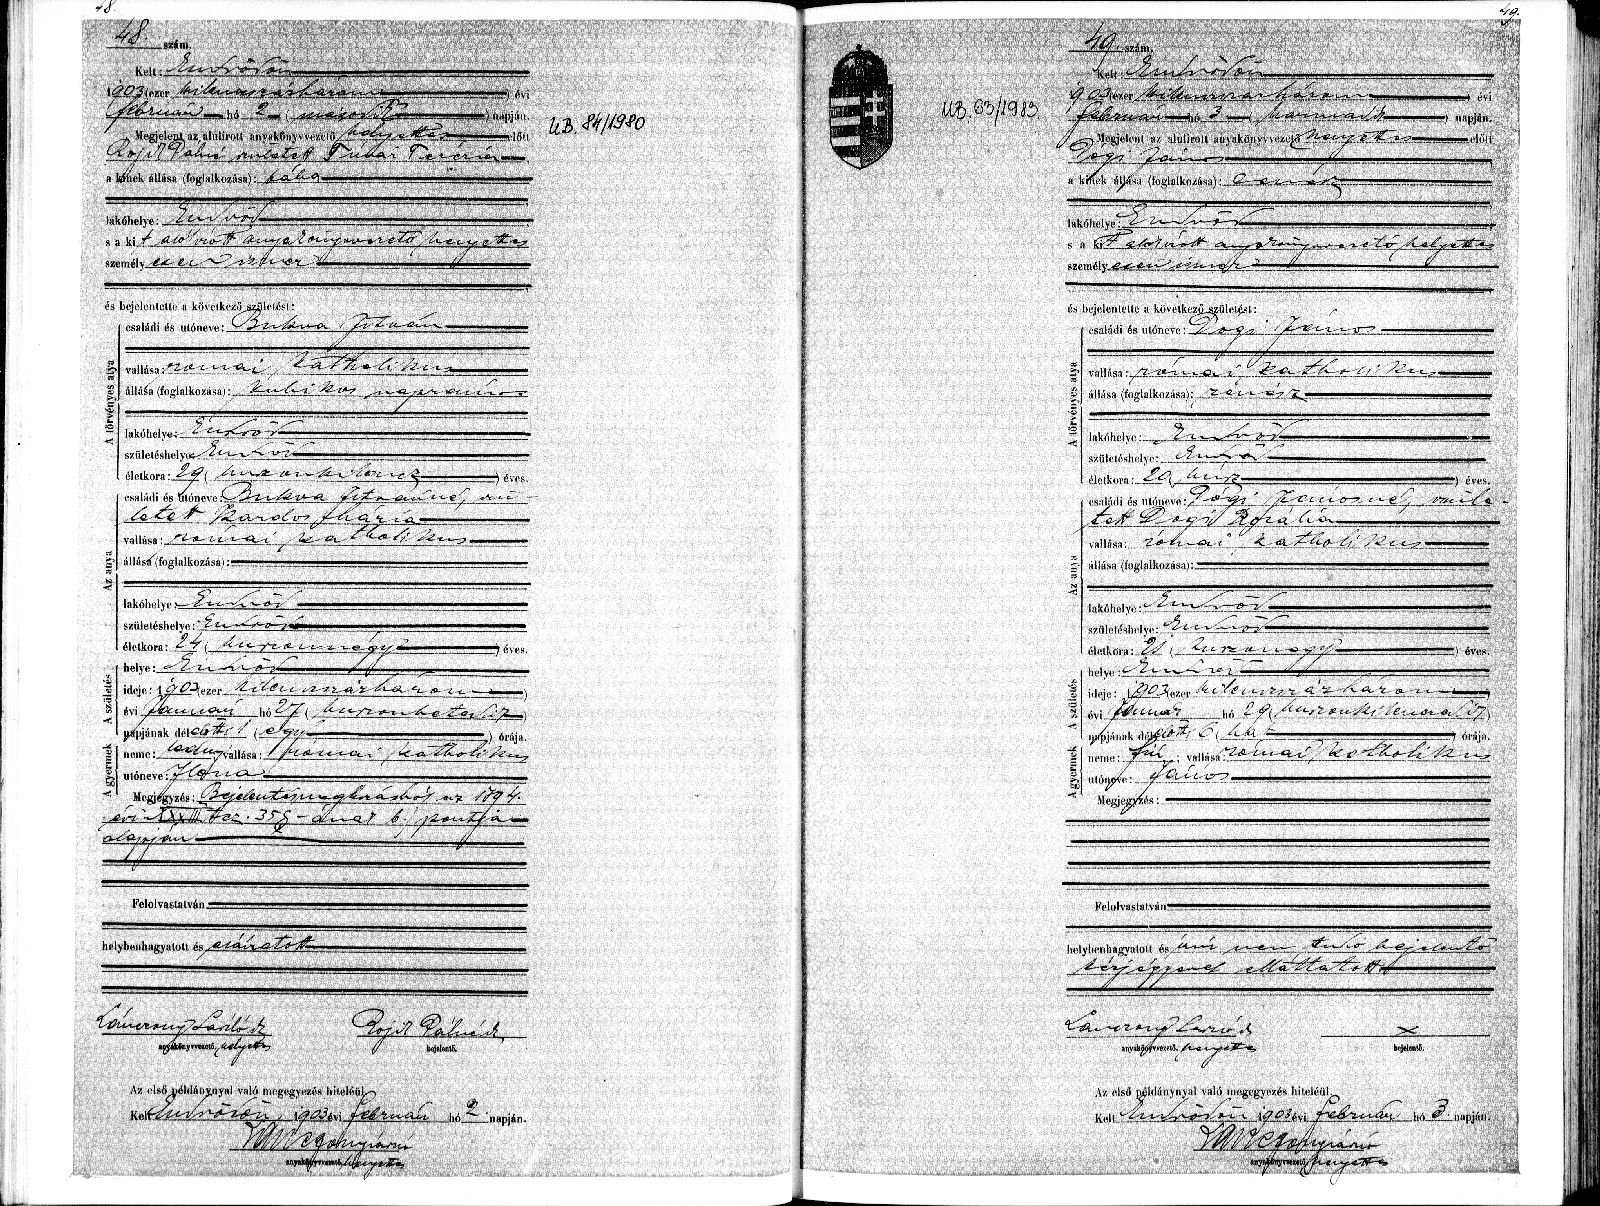 48.
48 szám.
Kelt: Endrődön
1903 (ezer kilenczszázhárom ) évi
február hó 2 ( második ) napján.
Megjelent az alulirott anyakönyvvezető helyettes előtt
Pálné született Teréz
a kinek állása (foglalkozása): bába
lakóhelye: Endrőd
s a ki t alólirott anyakönyvvezető helyettes
személyesen ismer
és bejelentette a következő születést:
A törvényes atya
családi és utóneve: Bukva István
vallása: római katholikus
állása (foglalkozása): kubikos napszámos
lakóhelye: Endrőd
születéshelye: Endrőd
életkora: 29 ( huszonkilencz ) éves.
Az anya
családi és utóneve: Bukva Istvánné, szü-
letett Kardos Mária
vallása: római katholikus
állása (foglalkozása):
lakóhelye: Endrőd
születéshelye: Endrőd
életkora: 24 ( huszonnégy ) éves.
A születés
helye: Endrőd
ideje: 1903 (ezer kilenczszázhárom )
évi január hó 27 ( huszonhetedik )
napjának délelőtti 1 ( egy ) órája.
A gyermek
neme: leány vallása: római katholikus
utóneve: Ilona
Megjegyzés: Bejelentés az 1894.
évi XXXIII tcz. 35§-ának b, pontja
alapján
Felolvastatván
helybenhagyatott és aláiratott
László
anyakönyvvezető, helyettes
Pálné
bejelentő.
Az első példánynyal való megegyezés hiteléül
Kelt Endrődön, 1903 évi február hó 2 napján.
anyakönyvvezető, helyettes
UB. 84/1980
49.
49. szám.
Kelt: Endrődön
1903 (ezer kilenczszázhárom ) évi
február hó 3 ( harmadik ) napján.
Megjelent az alulirott anyakönyvvezető helyettes előtt
Dogi János
a kinek állása (foglalkozása):
lakóhelye: Endrőd
s a ki t alólirott anyakönyvvezető helyettes
személyesen ismer
és bejelentette a következő születést:
A törvényes atya
családi és utóneve: Dogi János
vallása: római katholikus
állása (foglalkozása):
lakóhelye: Endrőd
születéshelye: Endrőd
életkora: 20 ( húsz ) éves.
Az anya
családi és utóneve: Dogi Jánosné, szüle-
tett Dogi Rozália
vallása: római katholikus
állása (foglalkozása):
lakóhelye: Endrőd
születéshelye: Endrőd
életkora: ( ) éves.
A születés
helye: Endrőd
ideje: 1903 (ezer kilenczszázhárom )
évi január hó 29 ( huszonkilenczedik )
napjának délelőtti 6 ( hat ) órája.
A gyermek
neme: fiú; vallása: római katholikus
utóneve: János
Megjegyzés:
Felolvastatván
helybenhagyatott és irni nem tudó bejelentő
kézjegyével elláttatott
László
anyakönyvvezető, helyettes
x
bejelentő.
Az első példánynyal való megegyezés hiteléül
Kelt Endrődön 1903 évi február hó 3. napján.
anyakönyvvezető, helyettes
UB. 63/1983